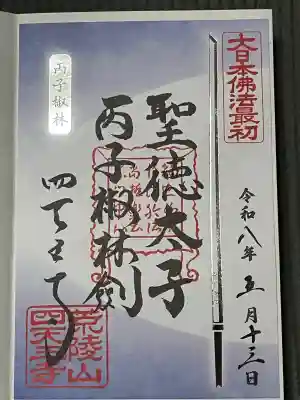 大日本佛法最初
令和八年五月十三日
聖徳太子
丙子椒林剣
四天王寺
丙子椒林
荒陵山
四天王寺